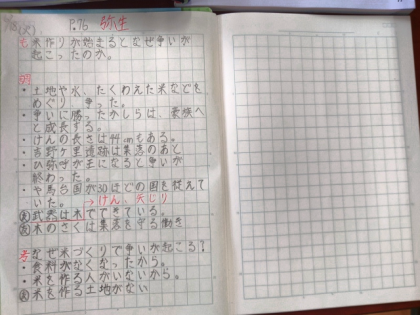 P.76 弥生
も 米作りが始まるとなぜ争いが
起こったのか。
・土地や水、たくわえた米などを
めぐり 争った。
・争いに勝ったかしらは、豪族へ
と成長する。
・けんの長さは44cmもある。
・吉野ケ里遺跡は集落のあと
・ひ弥呼が王になると争いが
終わった。
・や馬台国が30ほどの国を従えて
いた。 →けん、矢じり
武器は木でできている。
木のさくは集落を守る働き
なぜ米づくりで争いが起こる?
・食料がなくなったから。
・米を作る人がいないから。
米を作る土地がない